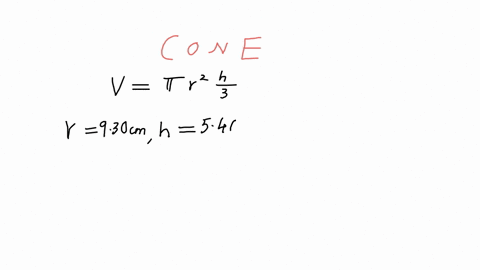 CONE
V = πr² h/3
r = 9.30cm, h = 5.4